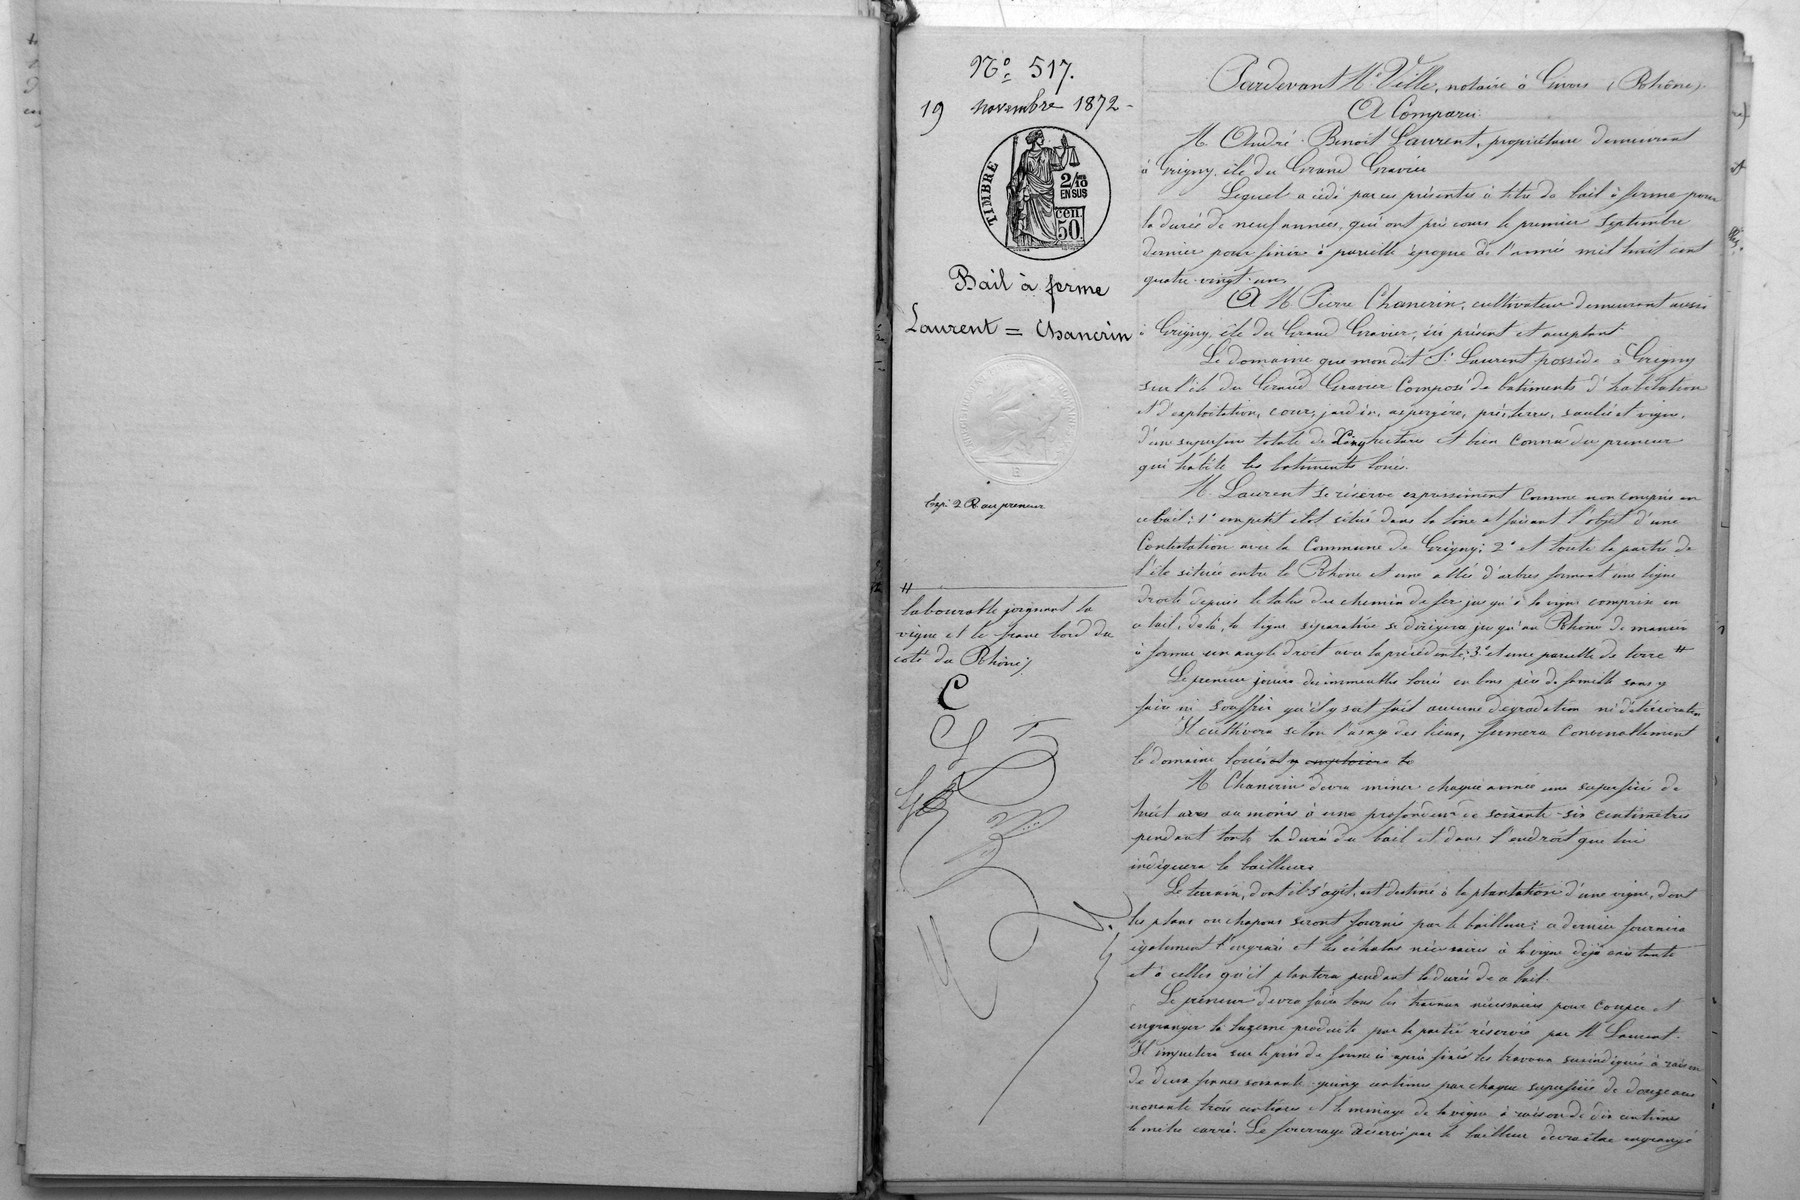 No. 517.
19 novembre 1872 -
TIMBRE
2/10
EN SUS
cen.
50.
Bail à ferme
Laurent = Chancrin
Exp: 2 R. au preneur
#
labourable joignant la
vigne et le franc bord du
coté du Rhône/
C
Pardevant Me Ville, notaire à Givors (Rhône).
A Comparu:
M. André Benoit Laurent, propriétaire demeurant
à Grigny, île du Grand Gravier
Lequel a cédé par ces présentes à titre de bail à ferme pour
la durée de neuf années, qui ont pris cours le premier septembre
dernier pour finir à pareille époque de l'année mil huit cent
quatre-vingt-un,
A M. Pierre Chancrin, cultivateur demeurant aussi
à Grigny, île du Grand Gravier, ici présent et acceptant:
Le domaine que mon dit Sr Laurent possède à Grigny
sur l'île du Grand Gravier composé de batiments d'habitation
et d'exploitation, cour, jardin, aspergère, prés, terres, saulée et vigne,
d'une superficie totale de cinq hectares et bien connu du preneur
qui habite les batiments loués.
M. Laurent se réserve expressément comme non compris en
ce bail: 1° un petit ilot situé dans la lône et faisant l'objet d'une
contestation avec la Commune de Grigny; 2° et toute la partie de
l'île située entre le Rhône et une allée d'arbres formant une ligne
droite depuis le talus du chemin de fer jusqu'à la vigne comprise en
ce bail; de là, la ligne séparative se dirigera jusqu'au Rhône de manière
à former un angle droit avec la précédente; 3° et une parcelle de terre #
Le preneur jouira des immeubles loués en bon père de famille sans y
faire ni souffrir qu'il y soit fait aucune dégradation ni détérioration
Il cultivera selon l'usage des lieux, fumera convenablement
le domaine loué et y emploiera le
M. Chancrin devra miner chaque année une superficie de
huit ares au moins à une profondeur de soixante-six centimètres
pendant toute la durée du bail et dans l'endroit que lui
indiquera le bailleur.
Le terrain, dont il s'agit, est destiné à la plantation d'une vigne, dont
les plans ou chapons seront fournis par le bailleur; ce dernier fournira
également l'engrais et les échalas nécessaires à la vigne déjà existante
et à celles qu'il plantera pendant la durée de ce bail.
Le preneur devra faire tous les travaux nécessaires pour couper et
engranger la luzerne produite par la partie réservée par M. Laurent.
Il imputera sur le prix de ferme ci après fixé les travaux susindiqués à raison
de deux francs soixante-quinze centimes par chaque superficie de douze ares
nonante trois centiares et le minage de la vigne à raison de dix centimes
le mètre carré. Le fourrage réservé par le bailleur devra être engrangé